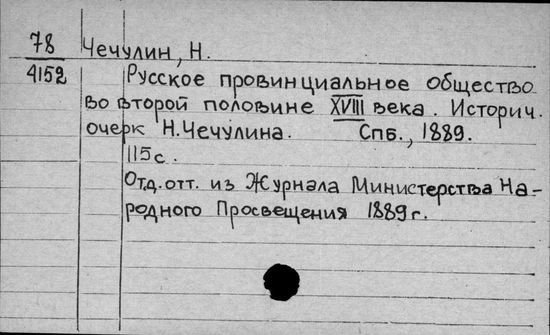 78 Чечулин, Н.
4152 Русское провинциальное общество
во второй половине XVIII века. Историч.
очерк Н. Чечулина. Спб., 1889.
115 с.
Отд. отт. из Журнала Министерства На-
родного Просвещения 1889 г.